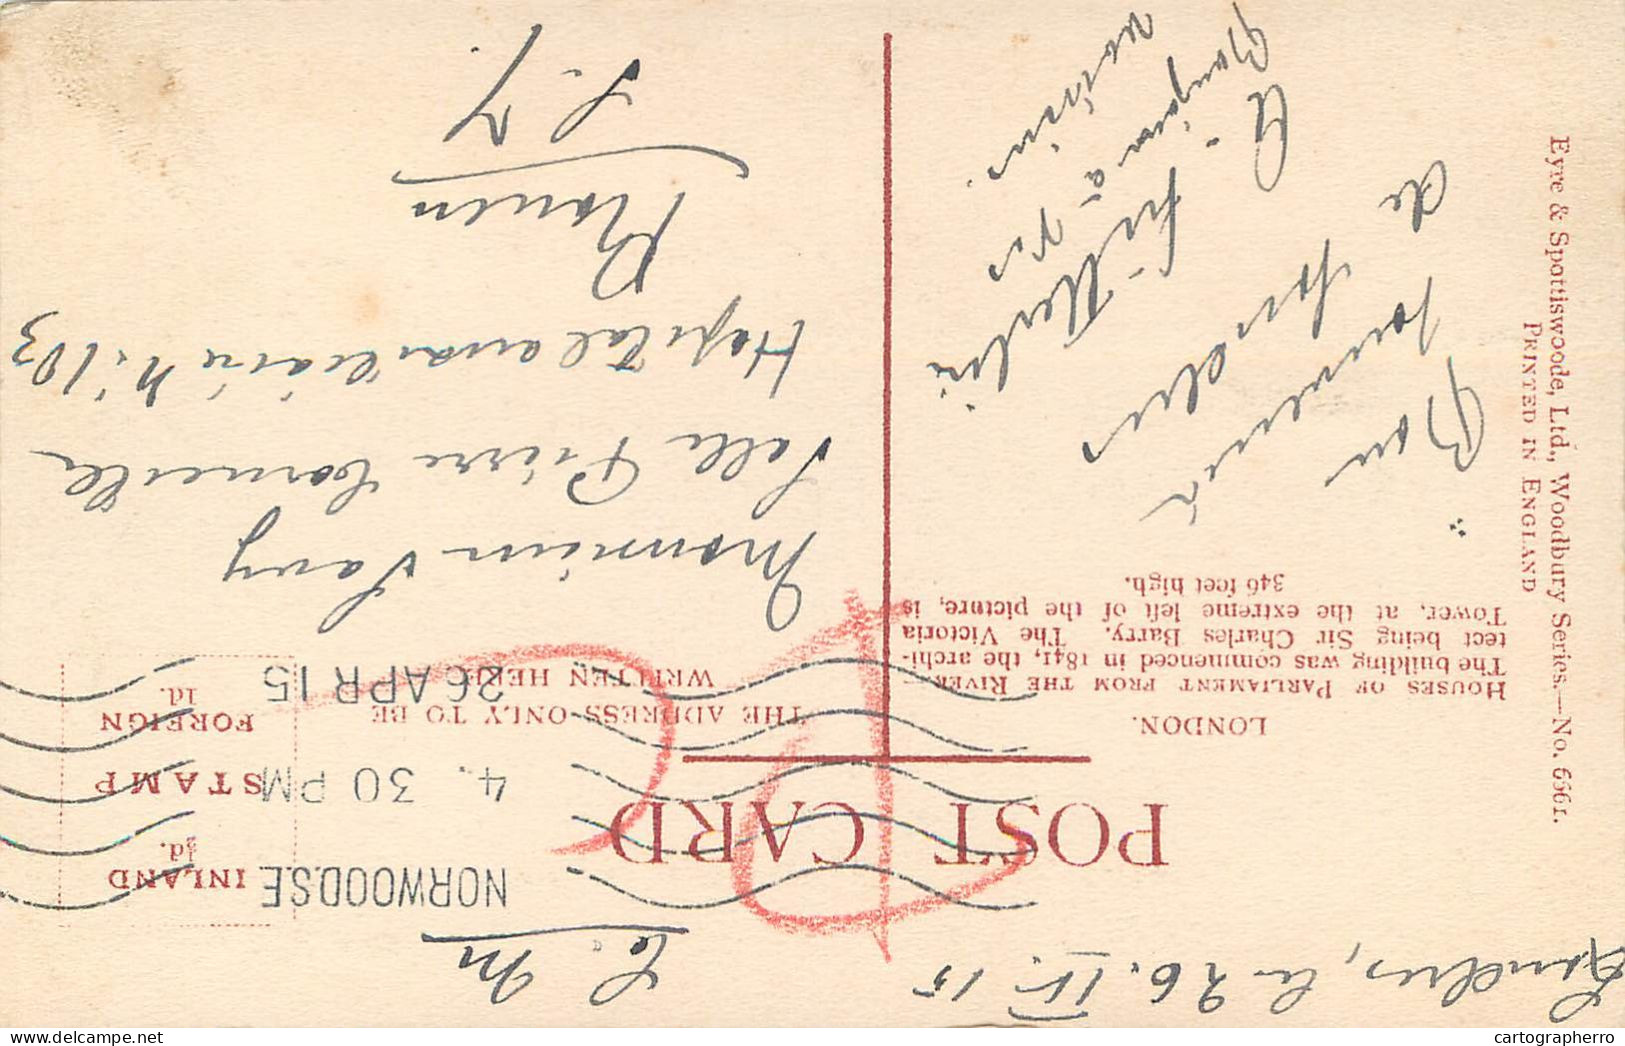 Londres, le 26. IV. 15
POST CARD
LONDON.
HOUSES OF PARLIAMENT FROM THE RIVER.—
The building was commenced in 1841, the archi-
tect being Sir Charles Barry. The Victoria
Tower, at the extreme left of the picture, is
346 feet high.
Bon
souvenir
de Londres
F. M
NORWOOD.S.E
4. 30 PM
26 APR 15
INLAND
½d.
STAMP
FOREIGN
1d.
THE ADDRESS ONLY TO BE
WRITTEN HERE
Monsieur Savy
Salle Pierre Corneille
Hopital auxiliaire N. 103
Rouen
S. I.
Eyre & Spottiswoode, Ltd., Woodbury Series.—No. 6561.
PRINTED IN ENGLAND
cartographerro